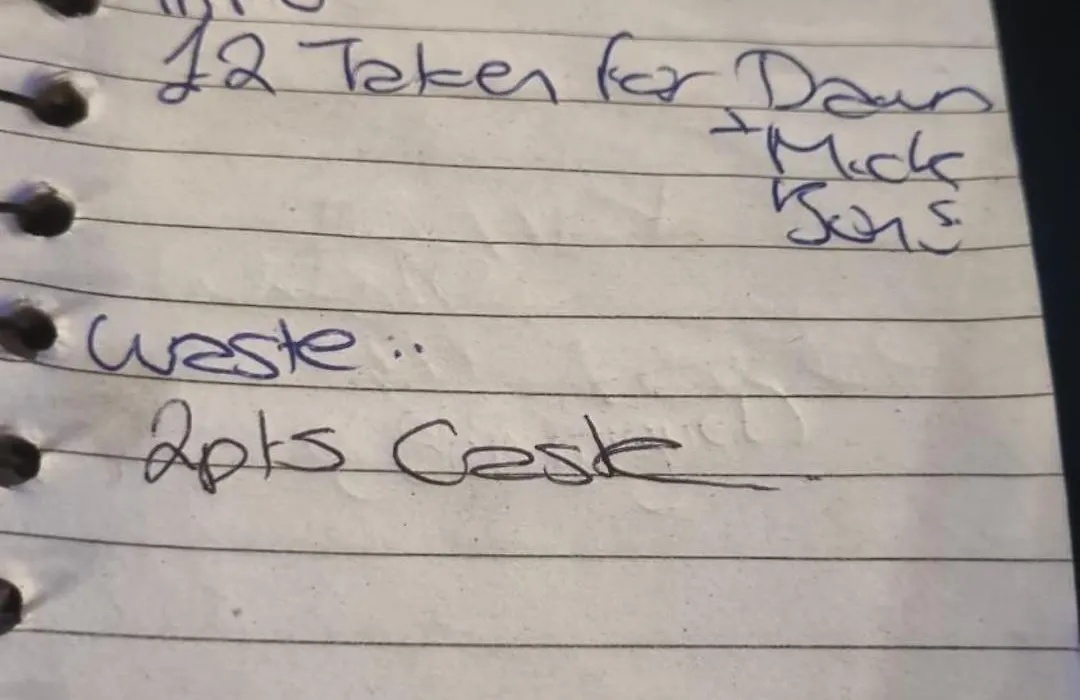 £2 Taken for Dawn
+ Mick
Jons
Waste :
2pts Cask